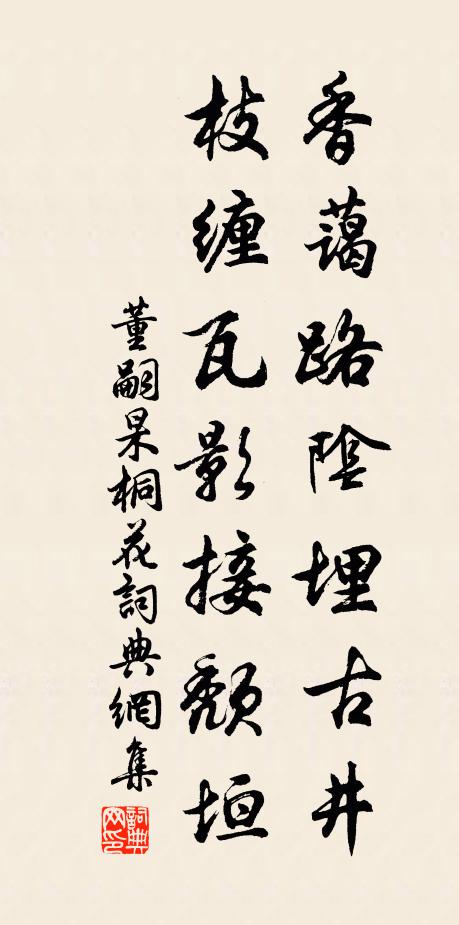 香藹路陰埋古井
枝缠瓦影接頹垣
董嗣杲桐花詞典網集
詞典网印